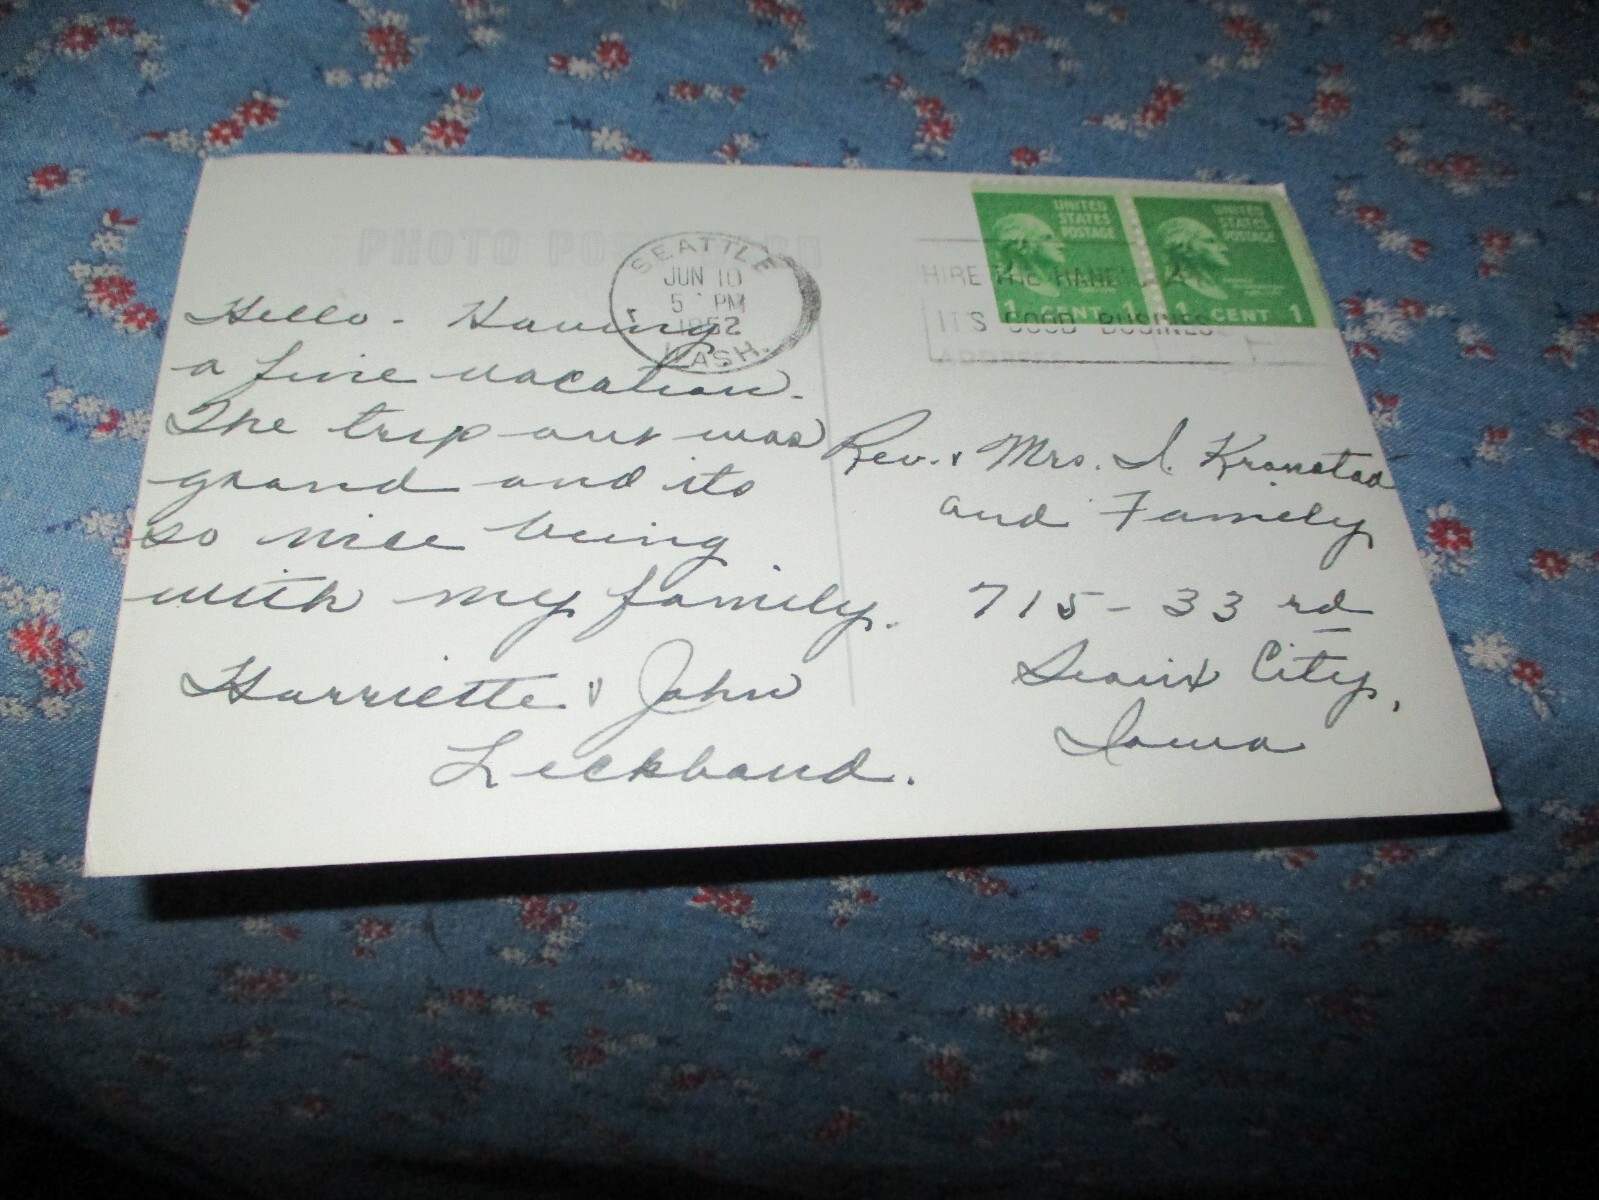 PHOTO POST CARD
SEATTLE
JUN 10
5 PM
1952
WASH.
HIRE THE
IT'S GOOD BUSINESS
UNITED
STATES
POSTAGE
1 CENT 1
UNITED
STATES
POSTAGE
1 CENT 1
Hello - Having
a fine vacation.
The trip out was
grand and its
so nice being
with my family.
Harriette & John
Leckband.
Rev. & Mrs. I. Kronstad
and Family
715 - 33 rd
Sioux City,
Iowa